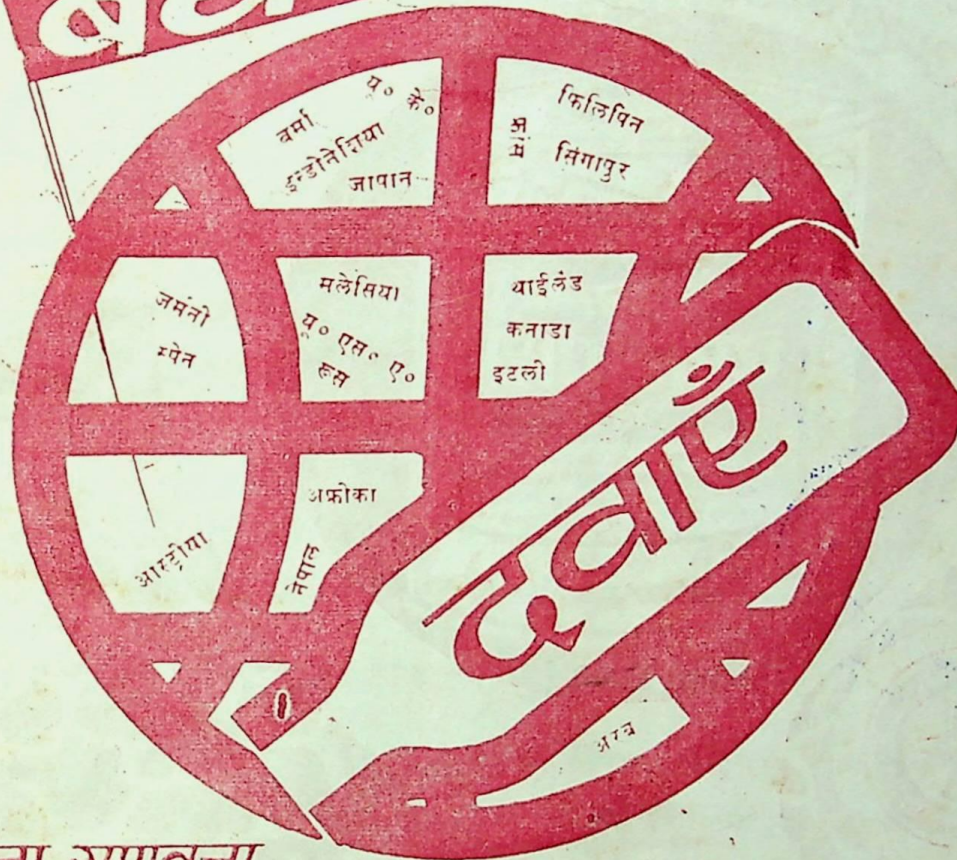 बर्मा
यू० के०
इन्डोनेशिया
जापान
फिलिपिन
सिंगापुर
जर्मनी
स्पेन
मलेसिया
यू० एस० ए०
रूस
थाईलैंड
कनाडा
इटली
अफ्रीका
नेपाल
आस्ट्रीया
दवाएँ
अरब